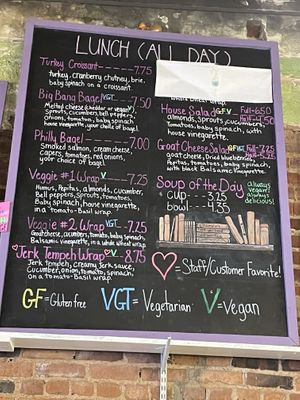 LUNCH (ALL DAY)
Turkey Croissant 7.75
turkey, cranberry chutney, brie,
baby spinach on a croissant.
Big Bang Bagel VGT 7.50
Melted cheese (cheddar or havarti),
Sprouts, cucumbers, bell peppers,
onions, tomatoes, baby spinach,
house vinegarette, your choice of bagel.
Philly Bagel 7.00
Smoked Salmon, cream cheese,
capers, tomatoes, red onions,
your choice of bagel.
Veggie #1 Wrap V 7.25
Humus, Pepitas, almonds, cucumber,
Bell peppers, sprouts, tomatoes,
Baby spinach, house vinegarette,
in a Tomato-Basil wrap.
Veggie #2 Wrap VGT 7.25
Goat cheese, cucumbers, tomato, baby spinach,
Balsamic vinegarette, in a whole wheat wrap.
Jerk Tempeh Wrap V 8.75
Jerk Tempeh, creamy jerk sauce,
Cucumber, onion, tomato, spinach,
on a Tomato-Basil wrap.
wheat wrap.
House Salad GF V Full-6.50
Half-4.50
almonds, Sprouts, cucumbers,
tomatoes, baby spinach, with
house vinegarette.
Goat Cheese Salad GF VGT Full-7.25
Half-5.25
goat cheese, Dried blueberries,
tomatoes, baby spinach, with
black Balsamic Vinegarette.
Soup of the Day
always vegan!
really delicious!
cup 3.25
bowl 4.35
= Staff/Customer Favorite!
GF = Gluten free VGT = Vegetarian V = Vegan